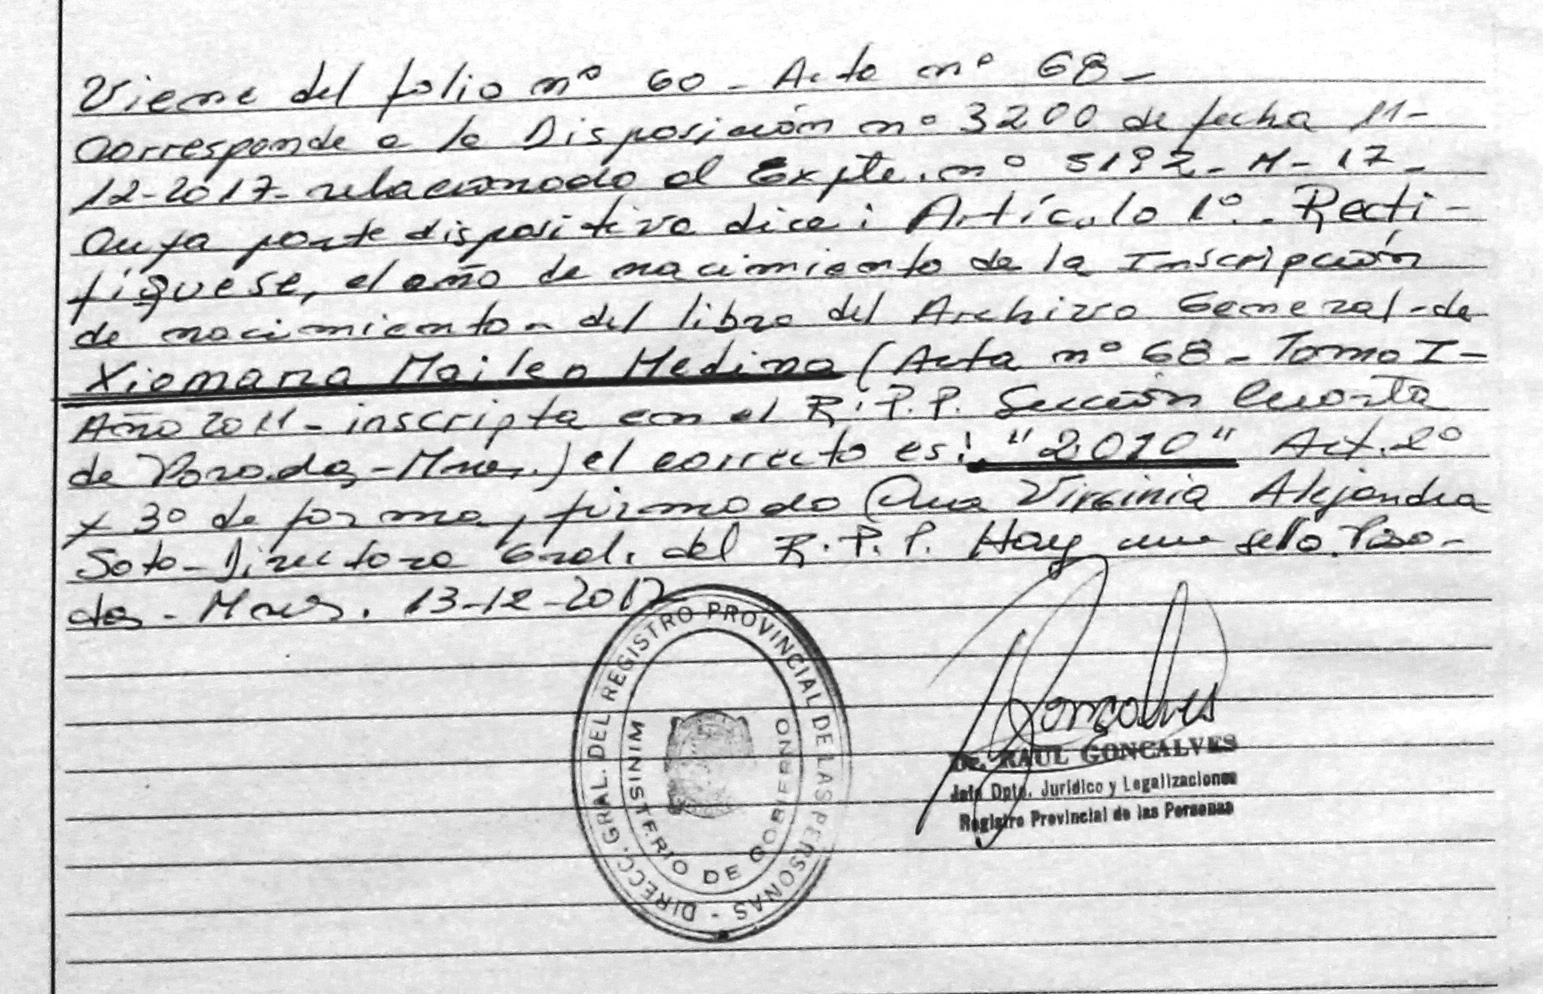 Viene del folio nº 60 - Acta nº 68 -
Corresponde a la Disposición nº 3200 de fecha 11-
12-2017- relacionado al Expte. nº 5192- M- 17 -
Cuya parte dispositiva dice: Artículo 1º. Recti-
fíquese, el año de nacimiento de la Inscripción
de nacimiento - del libro del Archivo General - de
Xiomara Mailen Medina (Acta nº 68 - Tomo I -
Año 2011 - inscripta en el R.P.P. Sección Cuarta
de Posadas - Mnes.) el correcto es: "2010" Art. 2º
y 3º de forma, firmado Dra Virginia Alejandra
Soto - Directora Gral. del R.P.P. Hay un sello. Posa-
das - Mnes. 13-12-2017
DIRECC. GRAL. DEL REGISTRO PROVINCIAL DE LAS PERSONAS -
MINISTERIO DE GOBIERNO
Goncalves
Dr. RAUL GONCALVES
Jefe Dpto. Jurídico y Legalizaciones
Registro Provincial de las Personas